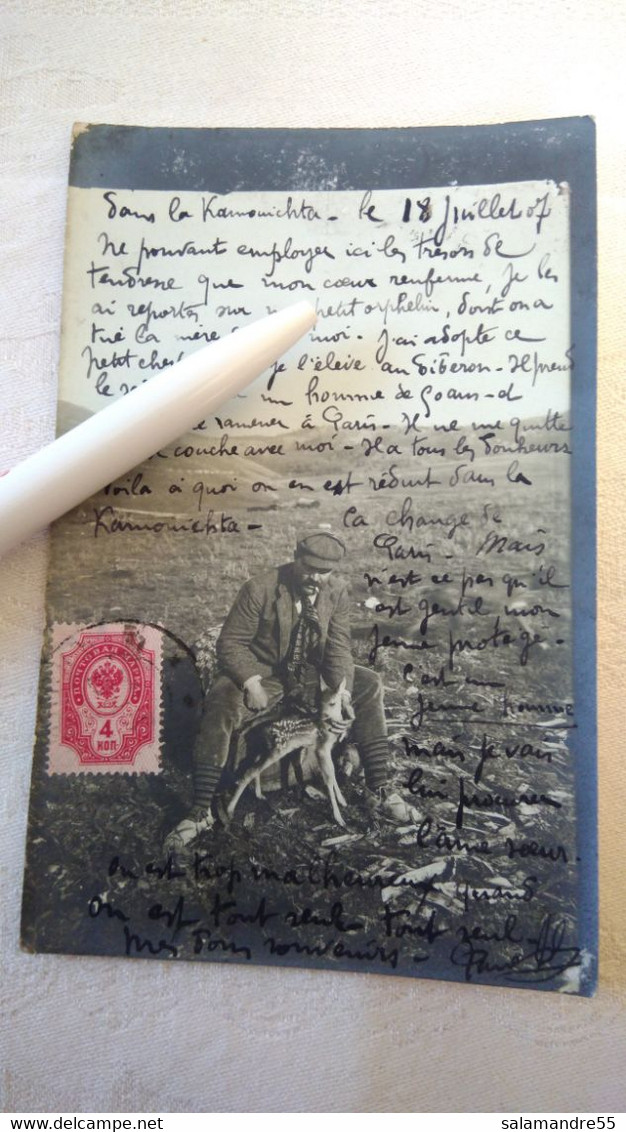 Dans la Kamouichta - le 18 Juillet 07
Ne pouvant employer ici les trésors de
tendresse que mon cœur renferme, je les
ai reportés sur petit orphelin, dont on a
tué la mère moi - J'ai adopté ce
petit je l'élève au biberon - Il prend
le un homme de
ramener à Paris - Il ne me quitte
couche avec moi - Il a tous les bonheurs
Voilà à quoi on en est réduit dans la
Kamouichta - ça change de
Paris - Mais
n'est ce pas qu'il
est gentil mon
jeune protégé -
c'est un
jeune homme
mais je vais
lui procurer
l'âme sœur.
on est trop malheureux quand
on est tout seul tout seul -
Mes bons souvenirs -
ПОЧТОВАЯ МАРКА
4
КОП
salamandre55